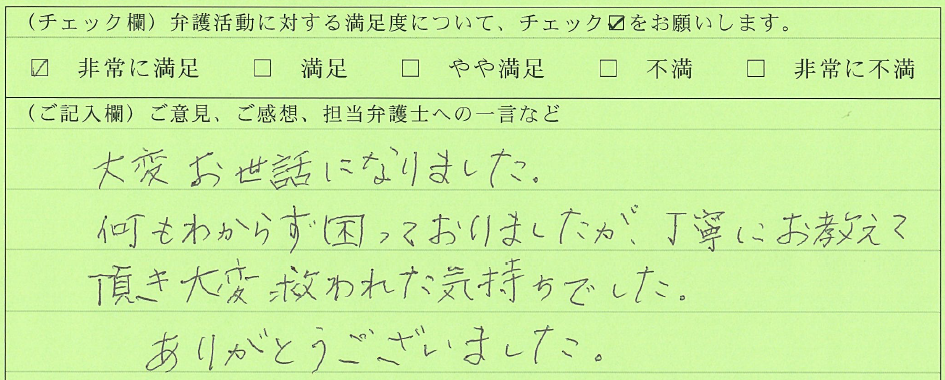 （チェック欄）弁護活動に対する満足度について、チェック☑をお願いします。
☑ 非常に満足 □ 満足 □ やや満足 □ 不満 □ 非常に不満
（ご記入欄）ご意見、ご感想、担当弁護士への一言など
大変お世話になりました。
何もわからず困っておりましたが、丁寧にお教えて
頂き大変救われた気持ちでした。
ありがとうございました。